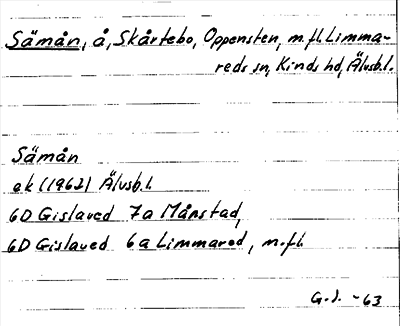 Sämån, å, Skårtebo, Oppensten, m.fl. Limma-
reds sn, Kinds hd, Älvsb.l.
Sämån
ek (1962) Älvsb.l.
6D Gislaved 7a Månstad,
6D Gislaved 6a Limmared, m.fl.
G.J. -63